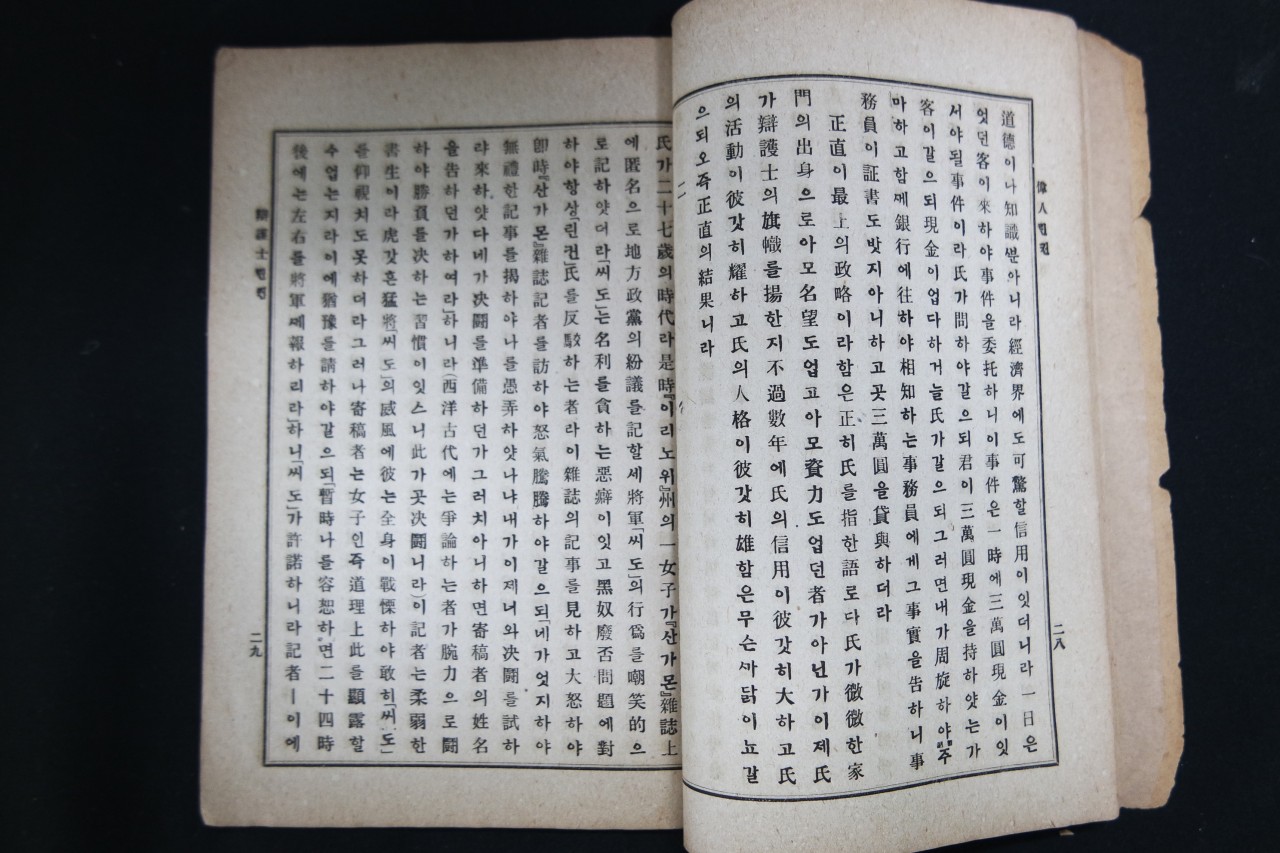 偉人린컨
二八
道德이나知識뿐아니라經濟界에도可驚할信用이잇더니라一日은
엇던客이來하야事件을委托하니이事件은一時에三萬圓現金이잇
서야될事件이라氏가問하야갈으되君이三萬圓現金을持하얏는가
客이갈으되現金이업다하거늘氏가갈으되그러면내가周旋하야주
마하고함께銀行에往하야相知하는事務員에게그事實을告하니事
務員이証書도밧지아니하고곳三萬圓을貸與하더라
正直이最上의政略이라함은正히氏를指한語로다氏가微微한家
門의出身으로아모名望도업고아모資力도업던者가아닌가이제氏
가辯護士의旗幟를揚한지不過數年에氏의信用이彼갓히大하고氏
의活動이彼갓히耀하고氏의人格이彼갓히雄함은무슨까닭이뇨갈
으되오즉正直의結果니라
二
氏가二十七歲의時代라是時『이리노위』州의一女子가『산가몬』雜誌上
에匿名으로地方政黨의紛議를記할세將軍「씨도」의行爲를嘲笑的으
로記하얏더라「씨도」는名利를貪하는惡癖이잇고黑奴廢否問題에對
하야항상「린컨」氏를反駁하는者라이雜誌의記事를見하고大怒하야
卽時『산가몬』雜誌記者를訪하야怒氣騰騰하야갈으되「네가엇지하야
無禮한記事를揭하야나를愚弄하얏나냐내가이제너와決鬪를試하
랴來하얏다네가決鬪를準備하던가그러치아니하면寄稿者의姓名
을告하던가하여라」하니라(西洋古代에는爭論하는者가腕力으로鬪
하야勝負를決하는習慣이잇스니此가곳決鬪니라)이記者는柔弱한
書生이라虎갓흔猛將「씨도」의威風에彼는全身이戰慄하야敢히「씨도」
를仰視치도못하더라그러나寄稿者는女子인즉道理上此를顯露할
수업는지라이에猶豫를請하야갈으되「暫時나를容恕하면二十四時
後에는左右를將軍께報하리라」하니「씨도」가許諾하니라記者ㅣ이에
辯護士린컨
二九